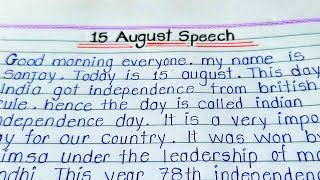 15 August Speech
Good morning everyone. my name is
Sanjay. Today is 15 august. This day
India got independence from british
rule. hence the day is called indian
independence day. It is a very impo
ay for our country. It was won by
himsa under the leadership of ma
ndhi. This year 78th independen